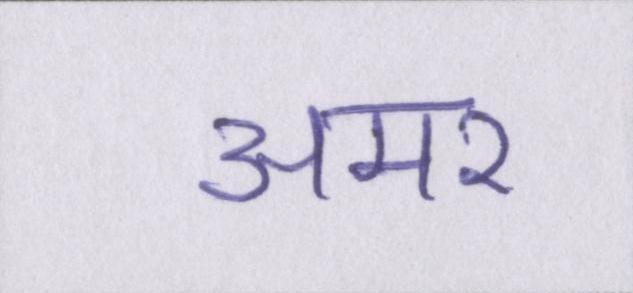 अमर